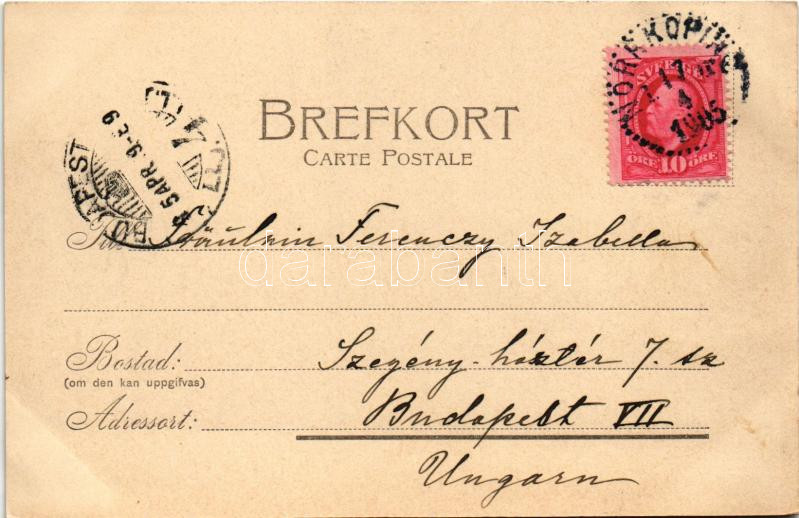 NORRKÖPING
11
4
1905
SVERIGE
ÖRE 10 ÖRE
BREFKORT
CARTE POSTALE
BUDAPEST
5 APR. 9-É9
Till Fräulein Ferenczy Izabella
darabanth
Bostad: Szegény-háztér 7. sz
(om den kan uppgifvas)
Adressort: Budapest VII
Ungarn